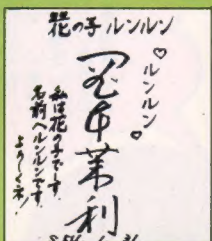 花の子ルンルン
♡ルンルン♡
岡本茉利
私は花の子です
名前ハルンルンです
よろしくネ!